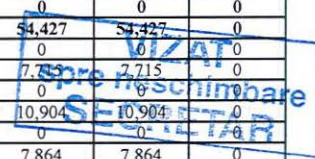 0 0 0
54,427 54,427 0
0 0 0
7,715 7,715 0
0 0 0
10,904 10,904 0
0 0 0
7,864 7,864 0
VIZAT
spre neschimbare
SECRETAR